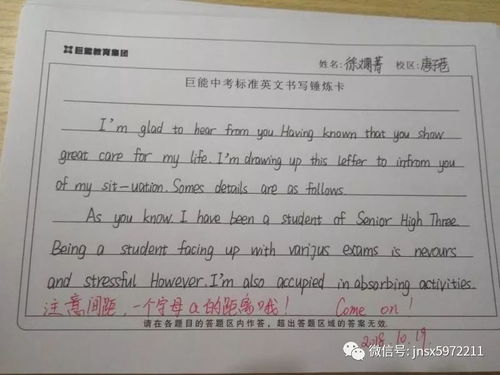 巨能教育集团
姓名: 徐斓菁 校区:
巨能中考标准英文书写锤炼卡
I'm glad to hear from you Having known that you show
great care for my life. I'm drawing up this leffer to infrom you
of my sit-uation. Somes details are as follows.
As you know. I have been a student of Senior High Three.
Being a student facing up with varijus exams is nevours
and stressful However. I'm also accupied in absorbing activities.
注意间距，一个字母a的距离哦！ Come on!
请在各题目的答题区内作答，超出答题区域的答案无效.
2018.10.19.
微信号: jnsx5972211